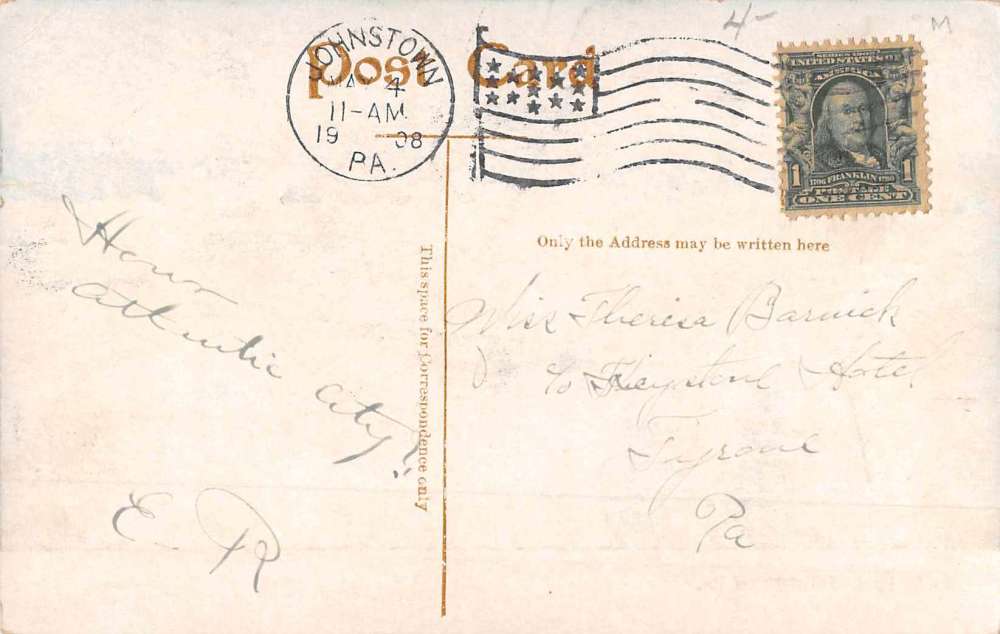 4-
M
Post Card
JOHNSTOWN
MA 4
11-AM
19 08
PA.
SERIES 1902
UNITED STATES OF
AMERICA
1
1
1706 FRANKLIN 1790
POSTAGE
ONE CENT
Only the Address may be written here
This space for Correspondence only
Hows
Atlantic
City!!
E R
Miss Theresa Barwick
c/o Keystone Hotel
Tyrone
Pa